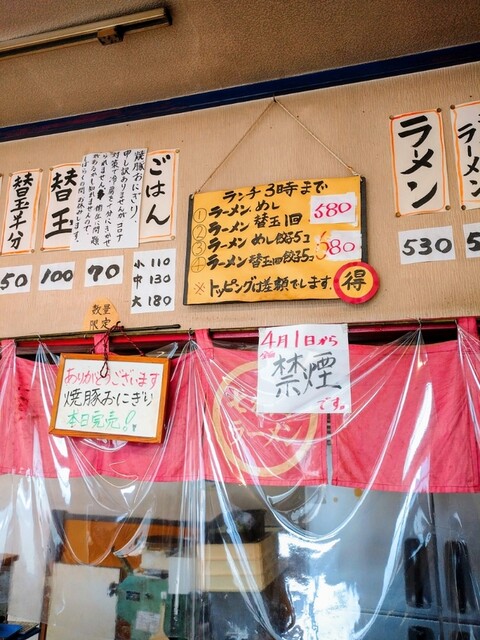 ラーメン
530
ランチ3時まで
①ラーメン、めし
②ラーメン 替玉1回
680
③ラーメン めし餃子5コ
④ラーメン 替玉1回餃子5コ
※トッピングは差額でします。
得
ごはん
小 110
中 130
大 180
焼豚おにぎり、
申し訳ありませんがコロナ
70
替玉
100
替玉半分
50
数量
限定
ありがとうございます
焼豚おにぎり
本日完売!
4月1日から
全面
禁煙
です。